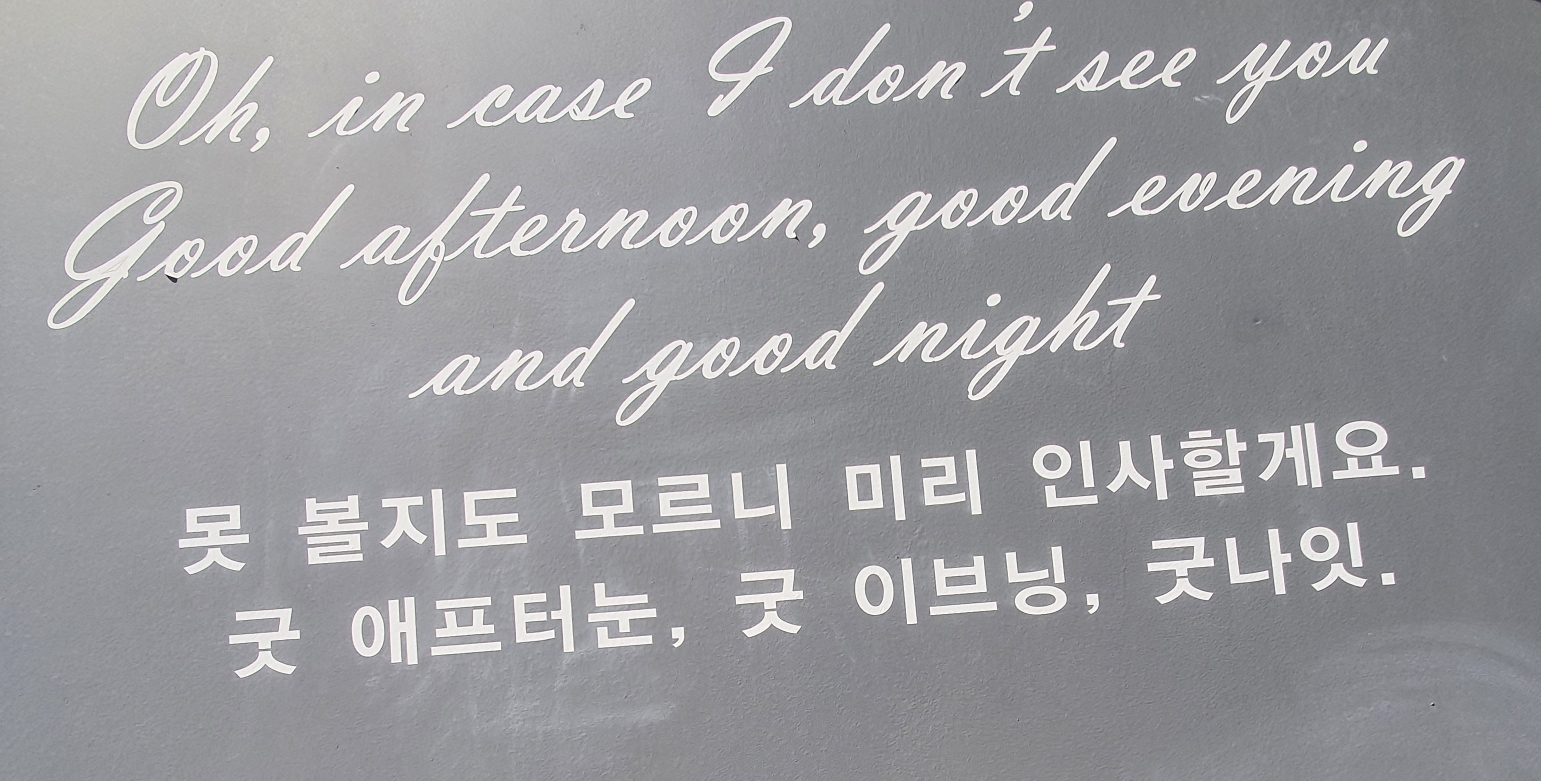 Oh, in case I don't see you
Good afternoon, good evening
and good night
못 볼지도 모르니 미리 인사할게요.
굿 애프터눈, 굿 이브닝, 굿나잇.